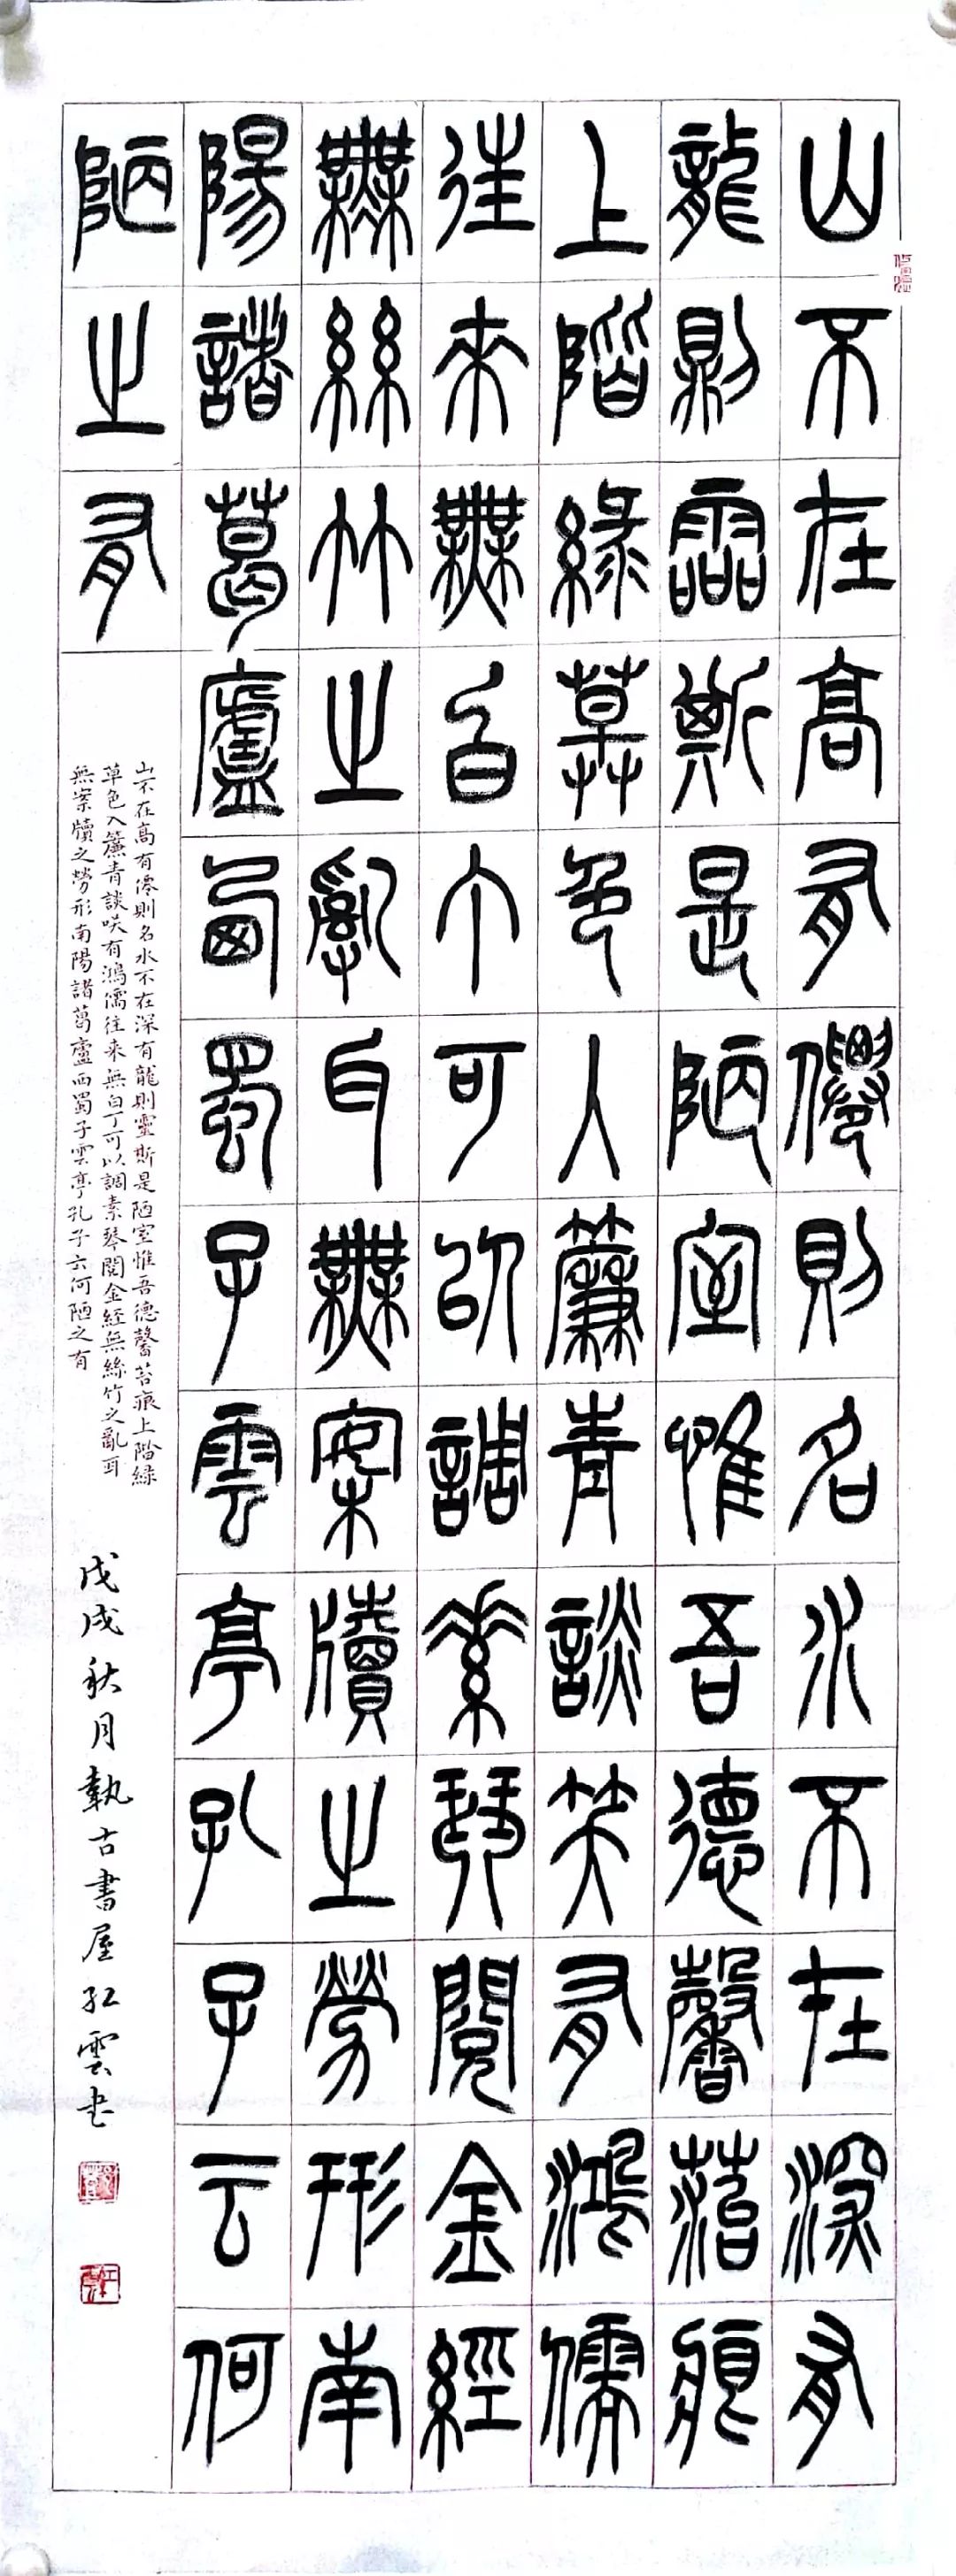 山不在高有僊則名水不在深有
龍則靈斯是陋室惟吾德馨苔痕
上階綠草色入簾青談笑有鴻儒
往來無白丁可以調素琴閱金經
無絲竹之亂耳無案牘之勞形南
陽諸葛廬西蜀子雲亭孔子云何
陋之有
山不在高有僊則名水不在深有龍則靈斯是陋室惟吾德馨苔痕上階綠
草色入簾青談咲有鴻儒往来無白丁可以調素琴閱金經無絲竹之亂耳
無案牘之勞形南陽諸葛廬西蜀子雲亭孔子云何陋之有
戊戌秋月執古書屋紅雲书